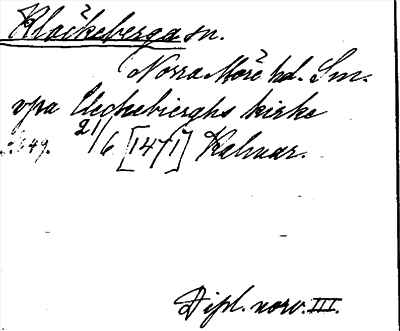 Kläckeberga sn.
Norra Möre hd. Sm.
vpa Clechebierghs kirke
s. 649. 21/6 [1471] Kalmar.
Dipl. norv. III.